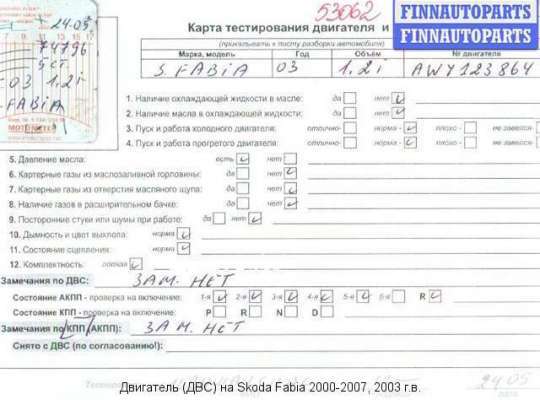 53062
FINNAUTOPARTS
FINNAUTOPARTS
24.05
Карта тестирования двигателя и
(прикалывать к листу разборки автомобиля)
74796
5 ст.
03 1,2i
FABIA
Марка, модель Год Объём № двигателя
S. FABIA 03 1,2i AWY123864
1. Наличие охлаждающей жидкости в масле: да нет
2. Наличие масла в охлаждающей жидкости: да нет
3. Пуск и работа холодного двигателя: отлично- норма - плохо - не завелся-
4. Пуск и работа прогретого двигателя: отлично- норма - плохо - не завелся-
5. Давление масла: есть нет
6. Картерные газы из маслозаливной горловины: да нет
7. Картерные газы из отверстия масляного щупа: да нет
8. Наличие газов в расширительном бачке: да нет
9. Посторонние стуки или шумы при работе: да нет
10. Дымность и цвет выхлопа: норма
11. Состояние сцепления: норма
12. Комплектность: полная
Замечания по ДВС: ЗАМ. НЕТ
Состояние АКПП - проверка на включение: 1-я 2-я 3-я 4-я 5-я 6-я R
Состояние КПП - проверка на включение: P R N D
Замечания по КПП (АКПП): ЗАМ. НЕТ
Снято с ДВС (по согласованию!):
24.05
Двигатель (ДВС) на Skoda Fabia 2000-2007, 2003 г.в.